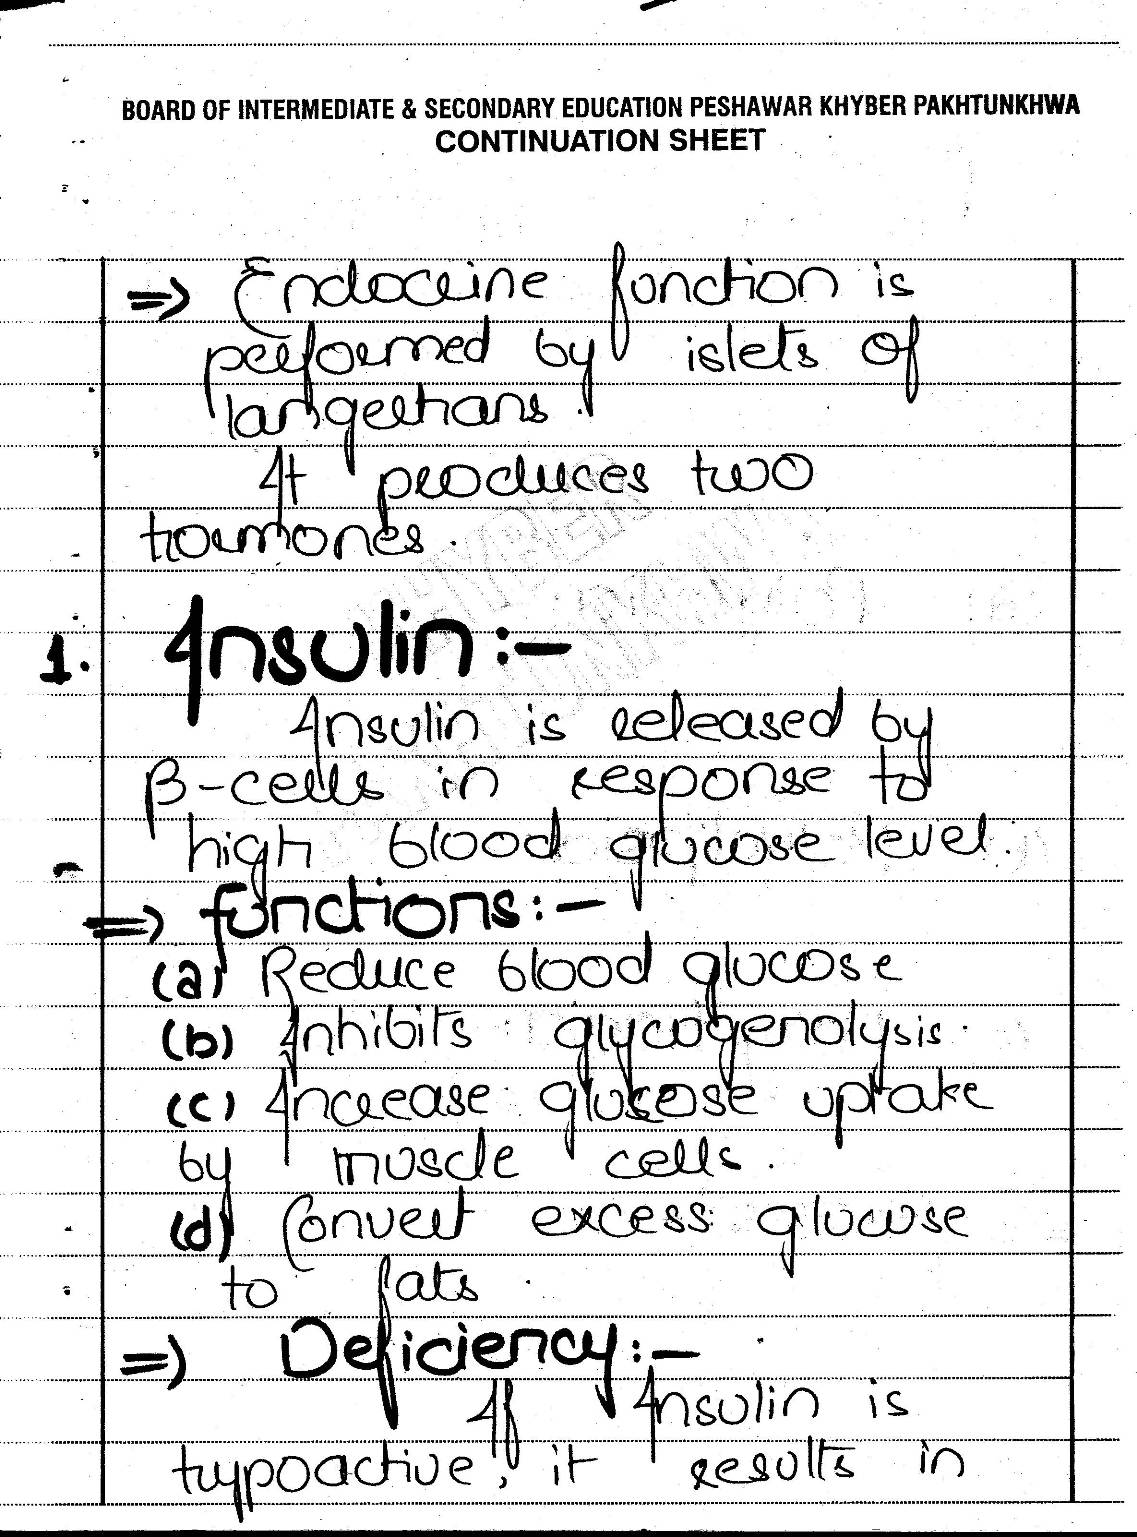 BOARD OF INTERMEDIATE & SECONDARY EDUCATION PESHAWAR KHYBER PAKHTUNKHWA
CONTINUATION SHEET
=> Endocrine function is
performed by islets of
langerhans.
It produces two
hormones.
1. Insulin:-
Insulin is released by
β-cells in response to
high blood glucose level.
=> functions:-
(a) Reduce blood glucose
(b) Inhibits glycogenolysis.
(c) Increase glucose uptake
by muscle cells.
(d) Convert excess glucose
to fats.
=> Deficiency:-
If Insulin is
hypoactive, it results in